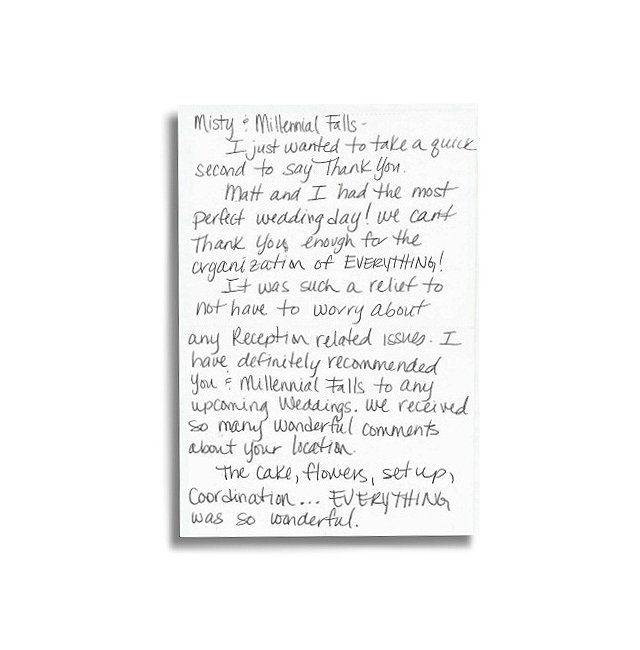 Misty & Millennial Falls -
I just wanted to take a quick
second to say Thank You.
Matt and I had the most
perfect wedding day! We can't
Thank You enough for the
organization of EVERYTHING!
It was such a relief to
not have to worry about
any Reception related issues. I
have definitely recommended
You & Millennial Falls to any
upcoming Weddings. We received
so many wonderful comments
about your location.
The cake, flowers, set up,
Coordination... EVERYTHING
was so wonderful.